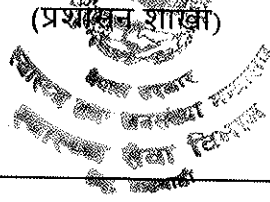 (प्रशासन शाखा)
नेपाल सरकार
स्वास्थ्य तथा जनसंख्या मन्त्रालय
स्वास्थ्य सेवा विभाग